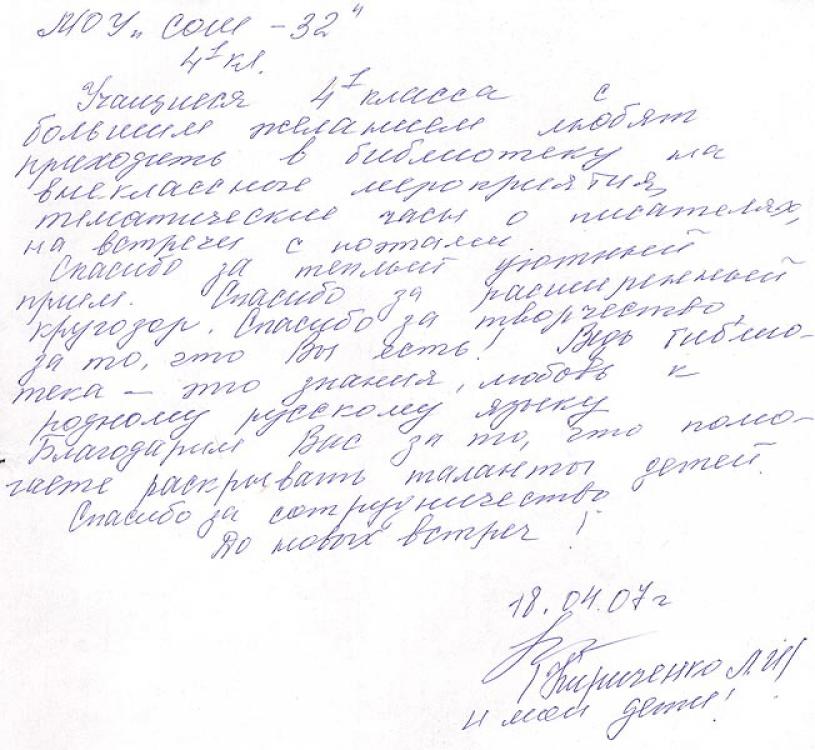 МОУ „СОШ - 32"
4¹ кл.
Учащиеся 4¹ класса с
большим желанием любят
приходить в библиотеку на
внеклассные мероприятия,
тематические часы о писателях,
на встречи с поэтами
Спасибо за теплый уютный
прием. Спасибо за расширенный
кругозор. Спасибо за творчество,
за то, что Вы есть! Ведь библио-
тека – это знания, любовь к
родному русскому языку
Благодарим Вас за то, что помо-
гаете раскрывать таланты детей.
Спасибо за сотрудничество
До новых встреч!
18.04.07 г
Кириченко Л.И
и мои дети!